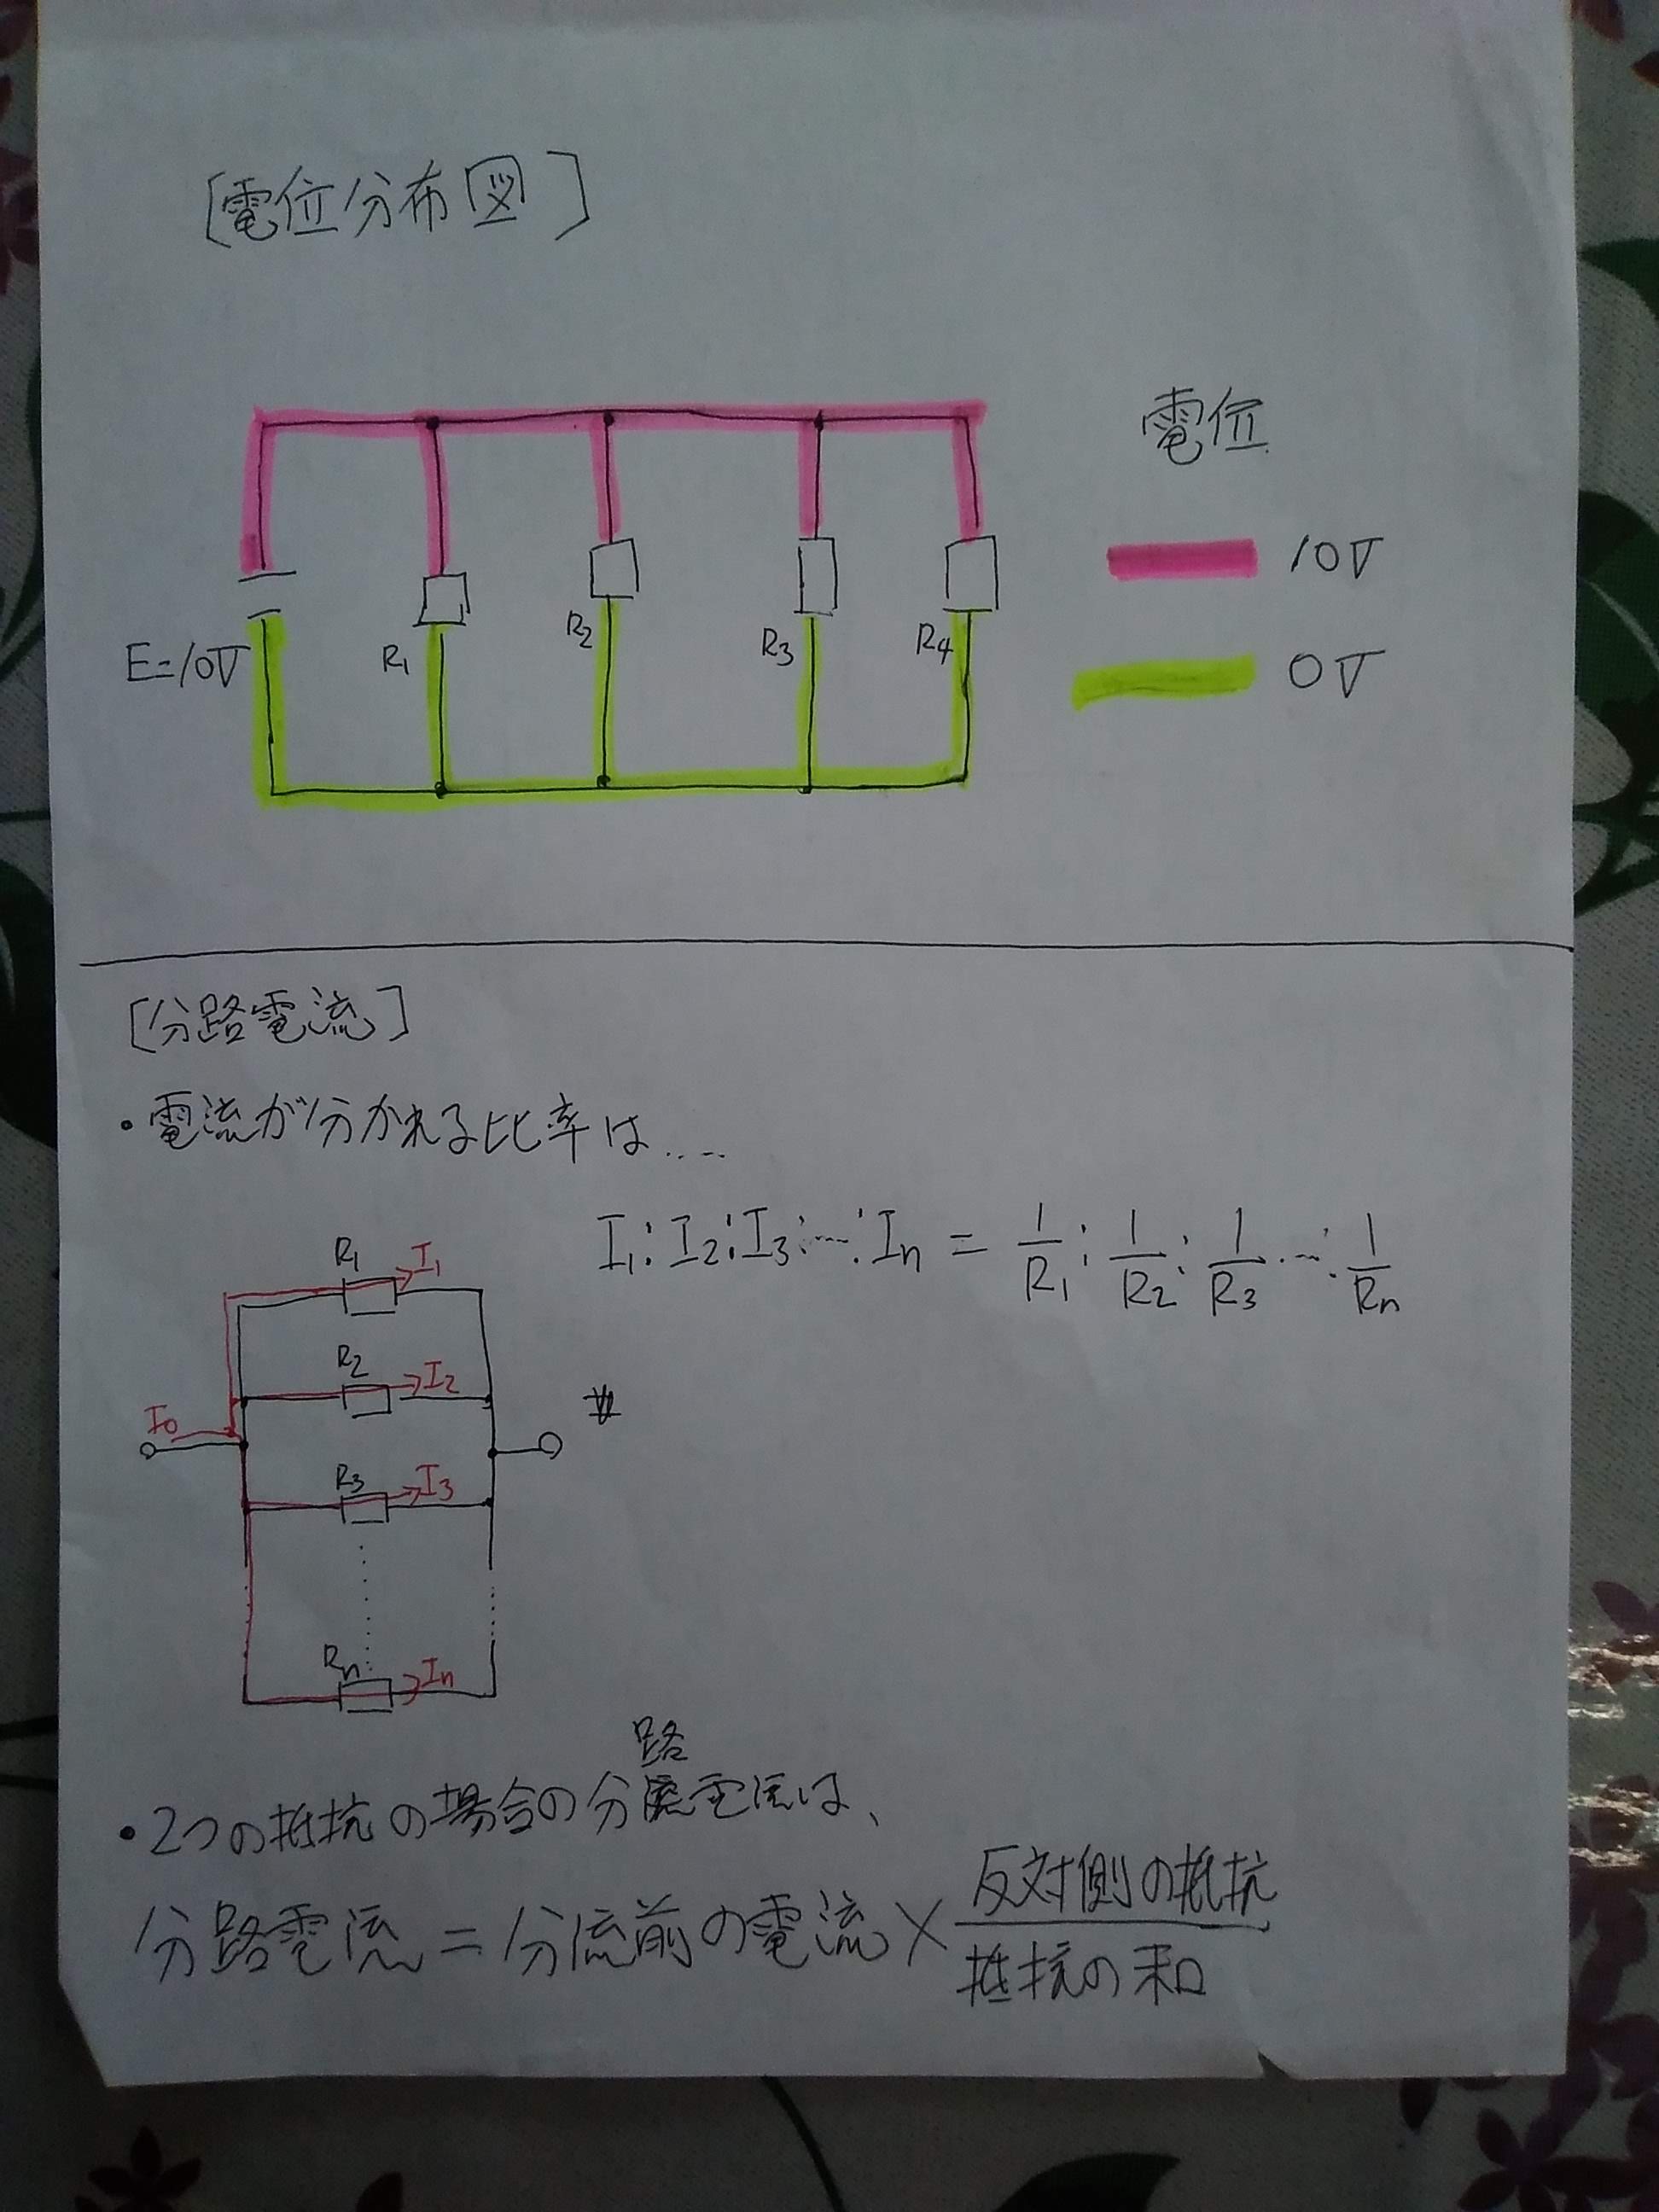 [電位分布図]
電位
10V
0V
E=10V
R1
R2
R3
R4
[分路電流]
・電流が分かれる比率は....
I1:I2:I3:…:In = 1/R1 : 1/R2 : 1/R3 …: 1/Rn
R1
I1
R2
I2
I0
R3
I3
Rn
In
・2つの抵抗の場合の分路電流は、
分路電流=分流前の電流×反対側の抵抗/抵抗の和